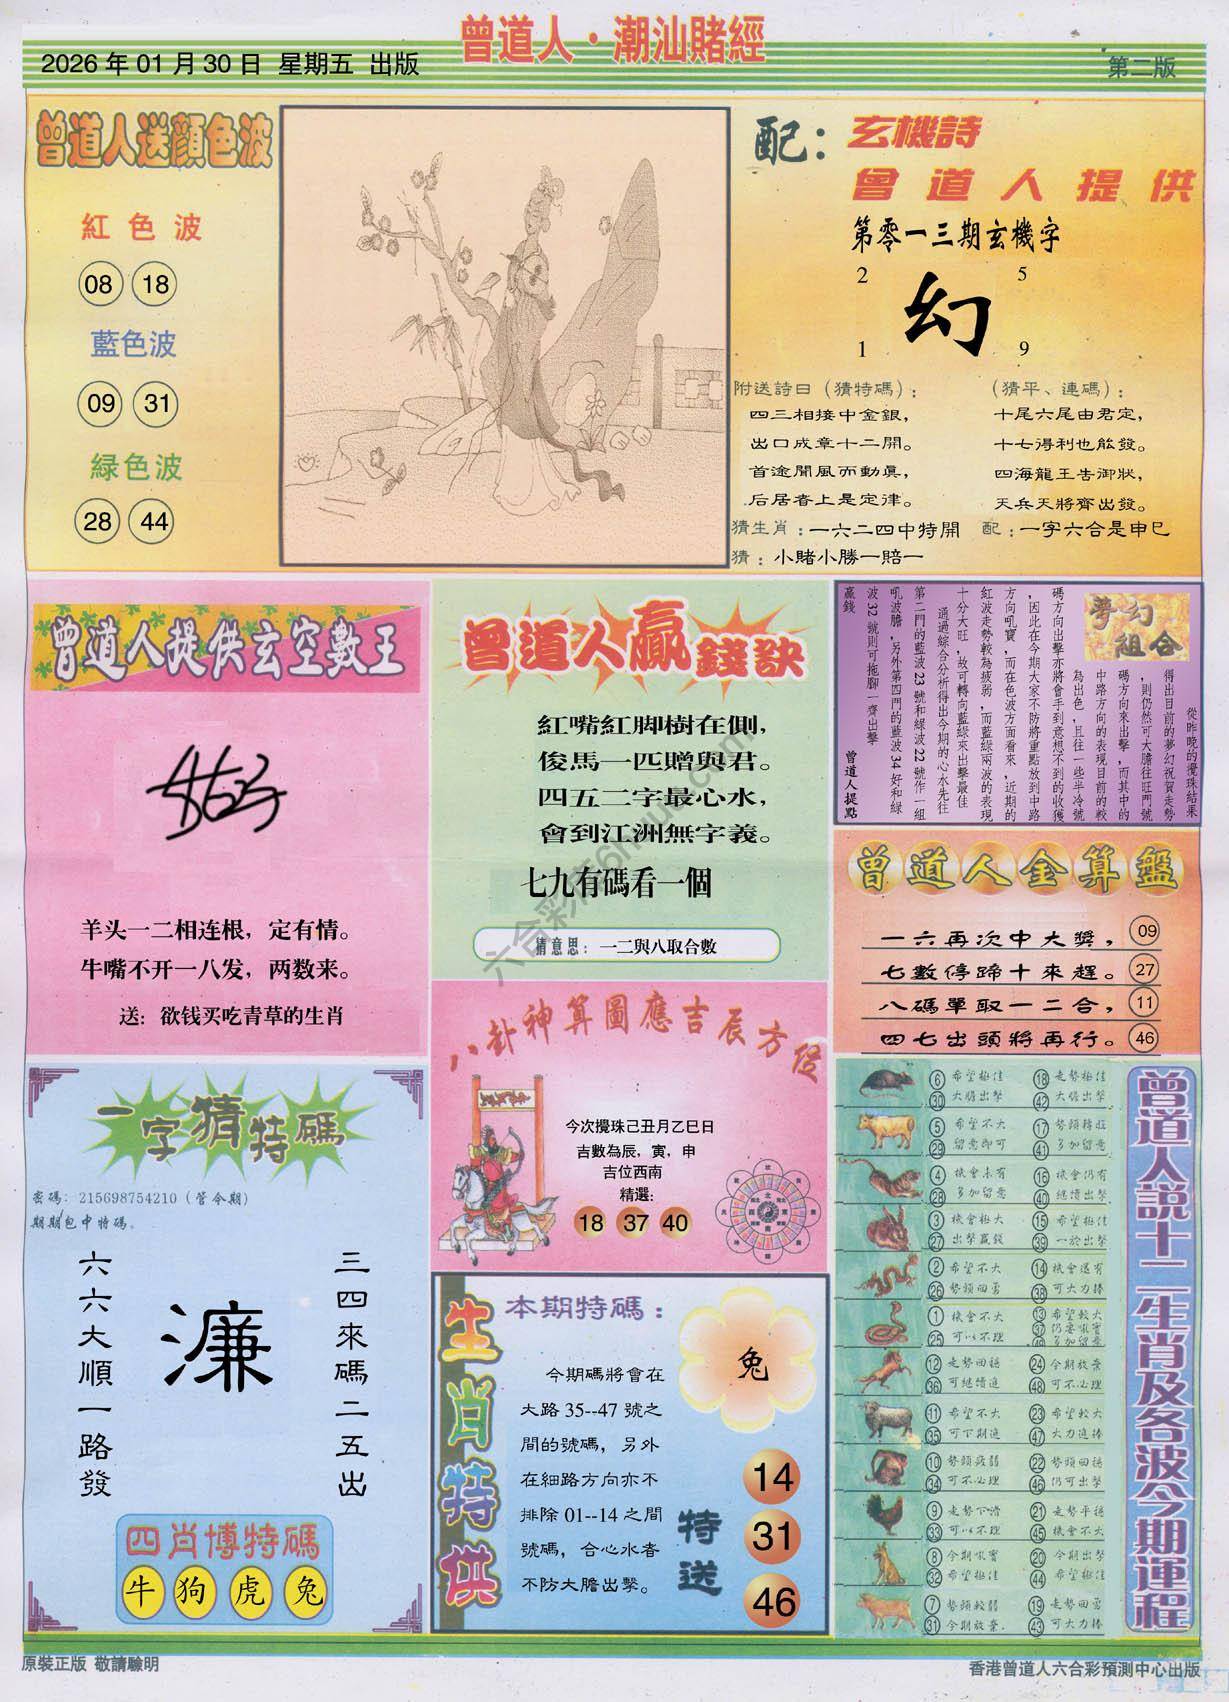 曾道人·潮汕賭經
2026 年 01 月 30 日 星期五 出版
第二版
曾道人送顏色波
紅色波
08 18
藍色波
09 31
綠色波
28 44
配：玄機詩
曾道人提供
第零一三期玄機字
2 5
幻
1 9
附送詩曰（猜特碼）：
四三相接中金銀，
出口成章十二開。
首途開風而動真，
后居者上是定律。
（猜平、連碼）：
十尾六尾由君定，
十七得利也能發。
四海龍王告御狀，
天兵天將齊出發。
猜生肖：一六二四中特開
配：一字六合是申巳
猜：小賭小勝一賠一
曾道人提供玄空數王
羊头一二相连根，定有情。
牛嘴不开一八发，两数来。
送：欲钱买吃青草的生肖
曾道人贏錢訣
紅嘴紅脚樹在側，
俊馬一匹贈與君。
四五二字最心水，
會到江洲無字義。
七九有碼看一個
猜意思：一二與八取合數
夢幻組合
從昨晚的攪珠結果
得出目前的夢幻祝賀走勢
，則仍然可大膽往旺門號
碼方向來出擊，而其中的
中路方向的表現目前的較
為出色，且往一些半冷號
碼方向出擊亦將會手到意想不到的收獲
，因此在今期大家不防將重點放到中路
方向吼寶，而在色波方面看來，近期的
紅波走勢較為疲弱，而藍綠兩波的表現
十分大旺，故可轉向藍綠來出擊最佳
通過綜合分析得出今期的心水先往
第二門的藍波 23 號和綠波 22 號作一組
吼波膽，另外第四門的藍波 34 好和綠
波 32 號則可拖腳一齊出擊
贏錢
曾道人提點
曾道人金算盤
一六再次中大獎， 09
七數停蹄十來趕。 27
八碼單取一二合， 11
四七出頭將再行。 46
八卦神算圖應吉辰方位
今次攪珠己丑月乙巳日
吉數為辰，寅，申
吉位西南
精選：
18 37 40
一字猜特碼
密碼：215698754210（管今期）
期期包中特碼。
六六大順一路發
濂
三四來碼二五出
四肖博特碼
牛 狗 虎 兔
生肖特供
本期特碼：
兔
今期碼將會在
大路 35--47 號之
間的號碼，另外
在細路方向亦不
排除 01--14 之間
號碼，合心水者
不防大膽出擊。
特送
14
31
46
曾道人說十二生肖及各波今期運程
6 希望極佳 18 走勢極佳
30 大膽出擊 42 大膽出擊
5 希望不大 17 勢頭轉旺
29 留意即可 41 多加留意
4 機會未有 16 機會仍有
28 多加留意 40 繼續出擊
3 機會極大 15 希望極佳
27 出擊贏錢 39 一於出擊
2 希望不大 14 機會還有
26 勢頭回勇 38 可大力捧
1 機會不大 13 希望較大
25 可以不理 37 仍要吼實
49 多加留意
12 走勢回穩 24 今期放棄
36 可繼續追 48 可不必理
11 希望不大 23 希望較大
35 可下期追 47 大力追捧
10 勢頭疲弱 22 勢頭回穩
34 可不必理 46 仍可出擊
9 走勢下滑 21 走勢平穩
33 可以不理 45 機會不大
8 今期吼實 20 今期出擊
32 希望極佳 44 希望極佳
7 勢頭較弱 19 走勢回勇
31 今期放棄. 43 可大力捧
原裝正版 敬請驗明
香港曾道人六合彩預測中心出版